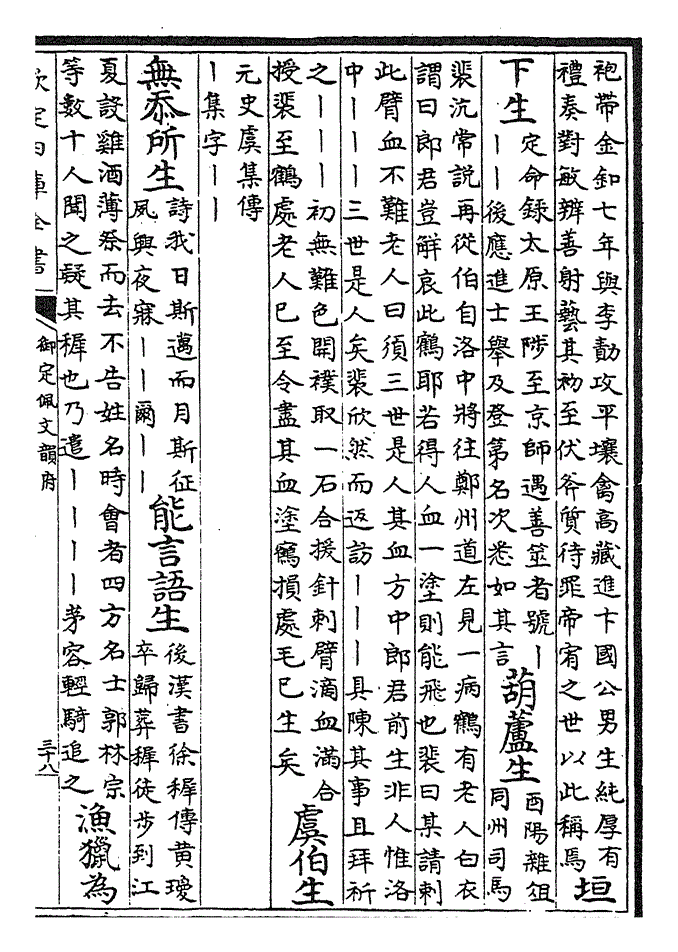 袍帶金釦七年與李勣攻平壤禽高藏進卞國公男生純厚有
禮奏對敏辨善射藝其初至伏斧質待罪帝宥之世以此稱焉
垣
下生
定命錄太原王陟至京師遇善筮者號〡
〡〡後應進士舉及登第名次悉如其言
葫蘆生
酉陽雜俎
同州司馬
裴沆常說再從伯自洛中將往鄭州道左見一病鶴有老人白衣
謂曰郎君豈解哀此鶴耶若得人血一塗則能飛也裴曰某請刺
此臂血不難老人曰須三世是人其血方中郎君前生非人惟洛
中〡〡〡三世是人矣裴欣然而返訪〡〡〡具陳其事且拜祈
之〡〡〡初無難色開襆取一石合援針刺臂滴血滿合
授裴至鶴處老人已至令盡其血塗鶴損處毛已生矣
虞伯生
元史虞集傳
〡集字〡〡
無忝所生
詩我日斯邁而月斯征
夙興夜寐〡〡爾〡〡
能言語生
後漢書徐穉傳黃瓊
卒歸葬穉徒步到江
夏設雞酒薄祭而去不告姓名時會者四方名士郭林宗
等數十人聞之疑其穉也乃遣〡〡〡〡茅容輕騎追之
漁獵為
欽定四庫全書
御定佩文韻府
三十八